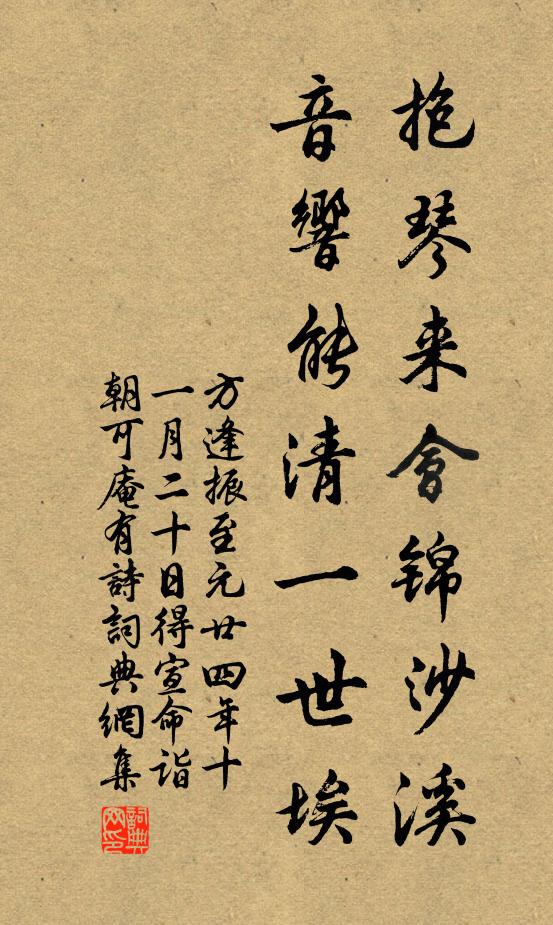 抱琴来會錦沙溪
音響能清一世埃
方逢振至元廿四年十
一月二十日得宣命詣
朝可庵有詩詞典網集
詞典网印